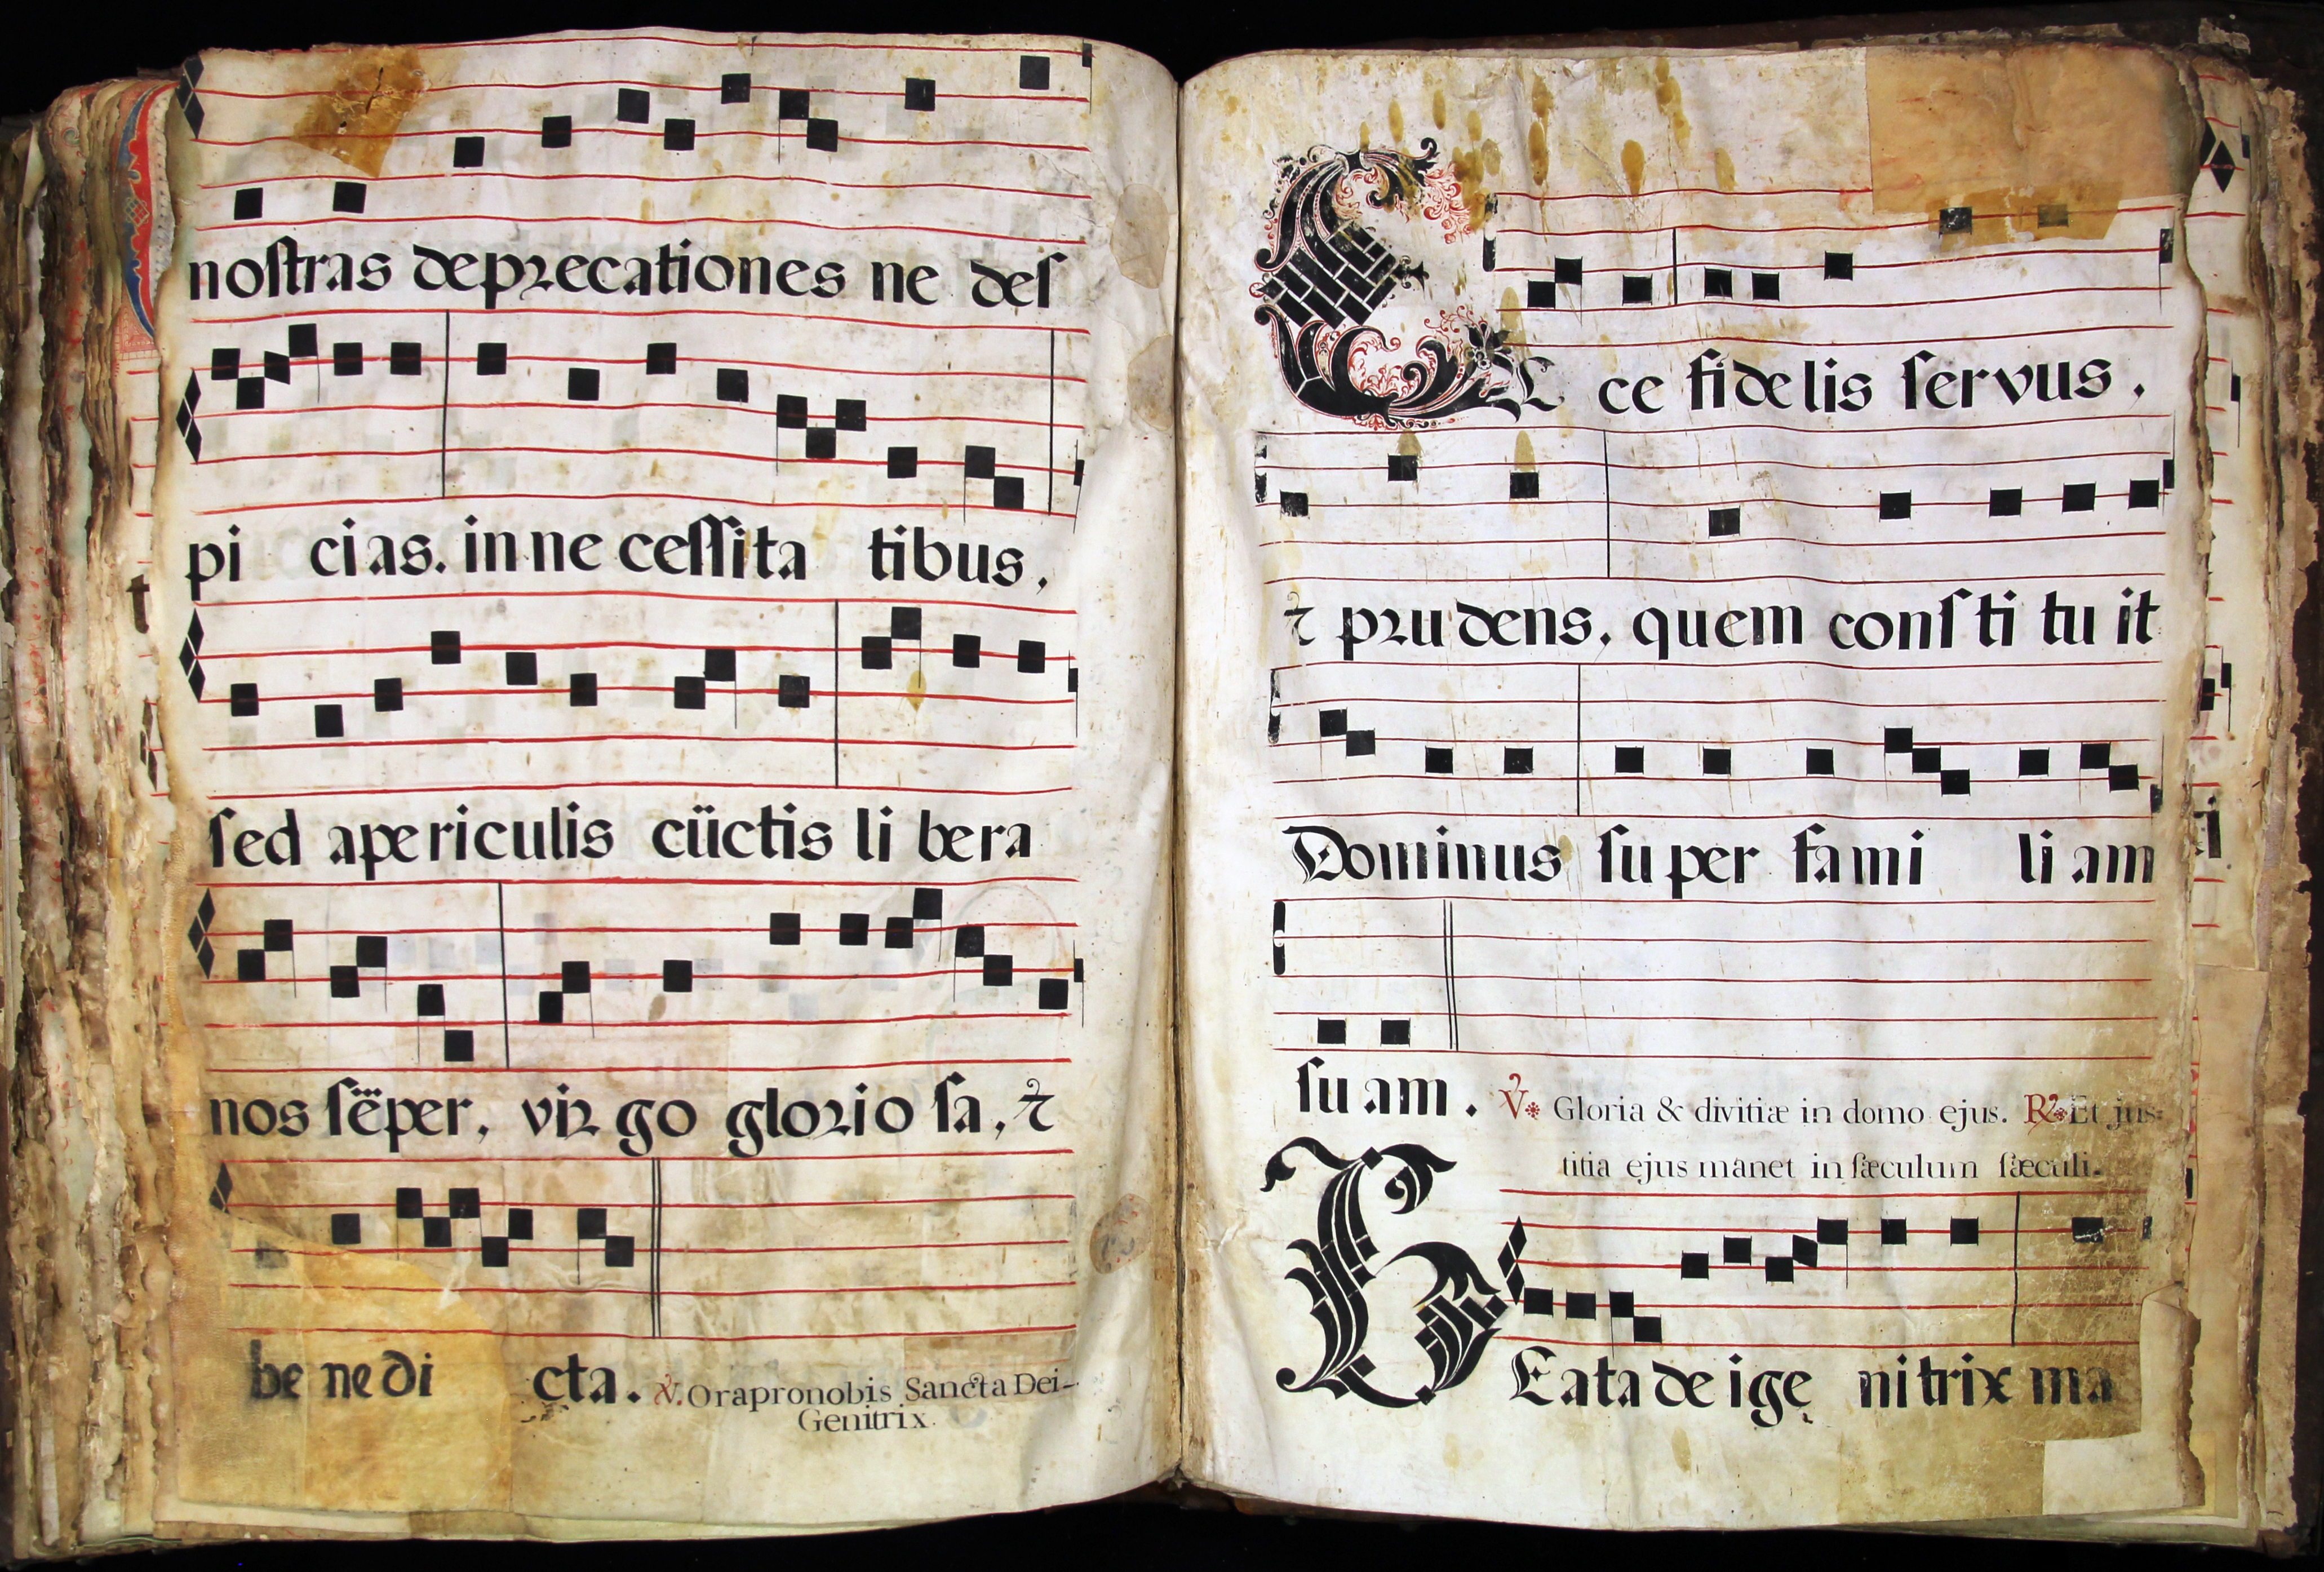 noſtras deprecationes ne deſ
pi ci as. in ne ceſſita tibus,
ſed apericulis cüctis li bera
nos ſëper, vir go glorio ſa, ⁊
be ne di cta. ℣. Orapronobis Sancta Dei-
Genitrix.
E
C ce fidelis ſervus,
⁊ prudens, quem conſ ti tu it
Dominus ſu per fami li am
ſu am. ℣ Gloria & divitiæ in domo ejus. ℟ Et jus=
titia ejus manet in ſæculum ſæculi.
B
Eata de ige nitrix ma